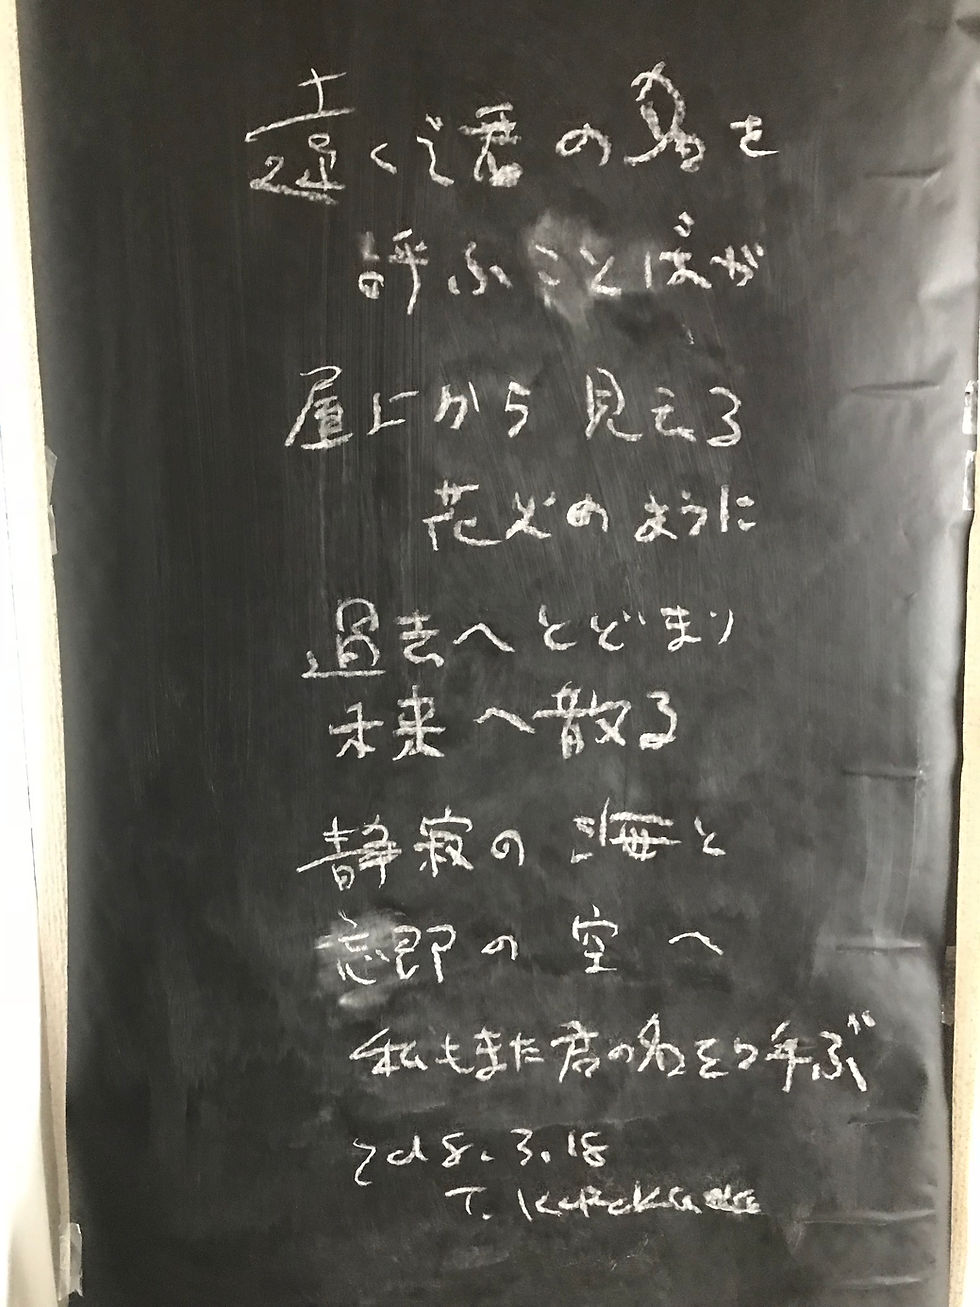 遠くで君の名を
呼ぶことばが
屋上から見える
花火のように
過去へとどまり
未来へ散る
静寂の海と
忘却の空へ
私もまた君の名を呼ぶ
2018.3.18
T.